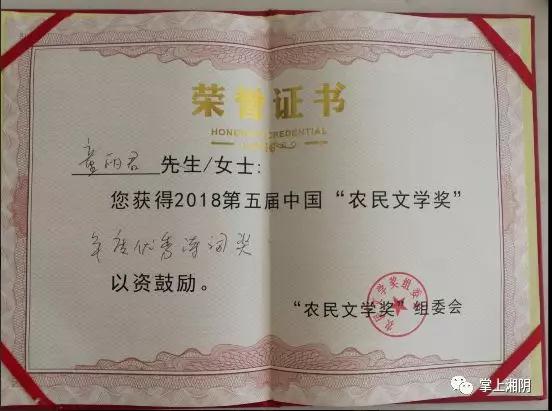 荣誉证书
HONORARY CREDENTIAL
童丽君 先生/女士:
您获得2018第五届中国“农民文学奖”
年度优秀诗词奖
以资鼓励。
“农民文学奖”组委会
农民文学奖组委会
掌上湘阴